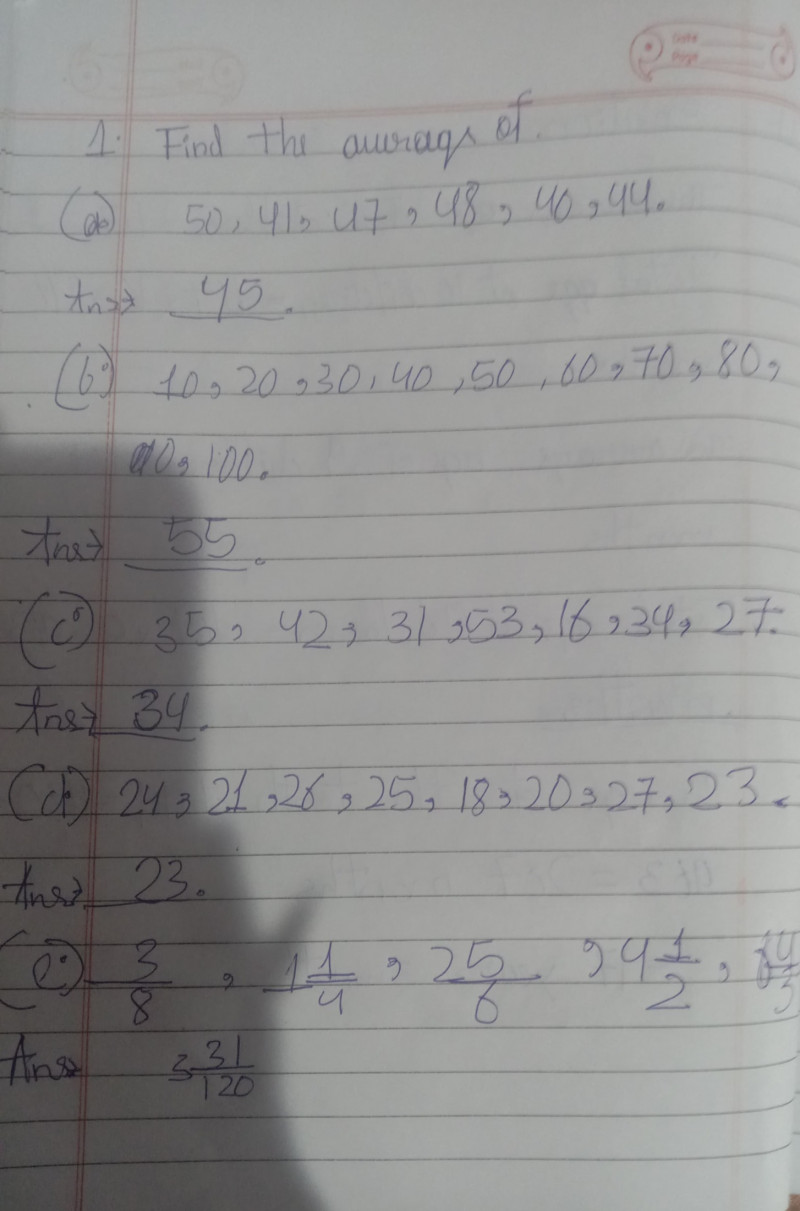 Date
Page
1. Find the average of.
(a) 50, 41, 47, 48, 40, 44.
Ans→ 45.
(b) 10, 20, 30, 40, 50, 60, 70, 80,
90, 100.
Ans→ 55.
(c) 35, 42, 31, 53, 16, 34, 27.
Ans→ 34.
(d) 24, 21, 26, 25, 18, 20, 27, 23.
Ans→ 23.
(e) 3/8, 1 1/4, 25/6, 4 1/2,
Ans→ 3 31/120